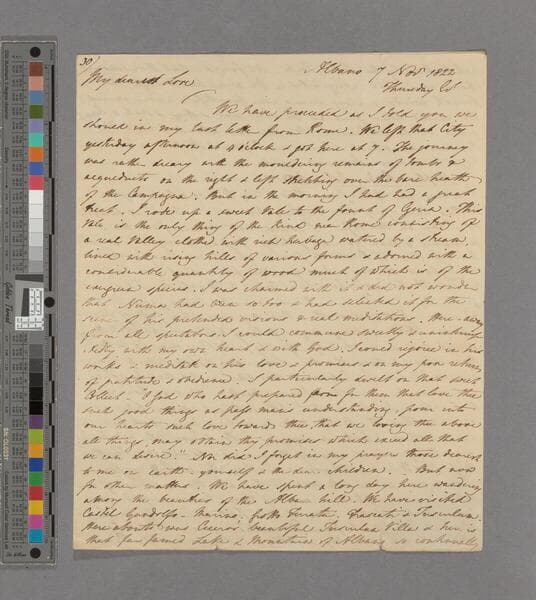 30/
Albano 7 Novr 1822
My dearest Love
Thursday Evg
We have proceeded as I told you we
should in my last letter from Rome. We left that City
yesterday afternoon at 4 o'clock & got here at 7. The journey
was rather dreary with the mouldering remains of tombs &
aqueducts on the right & left stretching over the bare heath
of the Campagna. But in the morning I had had a great
treat. I rode up a sweet Vale to the fount of Egeria. This
Vale is the only thing of the kind near Rome consisting of
a real Valley clothed with rich herbage watered by a stream
lined with rising hills of various forms & adorned with a
considerable quantity of wood much of which is of the
evergreen species. I was charmed with it & did not wonder
that Numa had been so too & had selected it for the
scene of his pretended visions & real meditations. Here away
from all spectators I could commune sweetly & uninterrup-
tedly with my own heart & with God. I could rejoice in his
works & meditate on his love & promises & on my poor returns
of gratitude & obedience. I particularly dwelt on that sweet
Collect "O God who hast prepared for them that love thee
such good things as pass mans understanding, pour into
our hearts such love towards thee, that we loving thee above
all things, may obtain thy promises which exceed all that
we can desire." Nor did I forget in my prayers those dearest
to me on earth - yourself & the dear children. But now
for other matters. We have spent a long day here wandering
among the beauties of the Alban hills. We have visited
Castel Gandolfo - Marino, Grotta Ferrata, Frascati & Tusculum.
Here abouts was Ciceros beautiful Tusculan Villa & here is
that far famed Lake & Mountain of Albano so continually